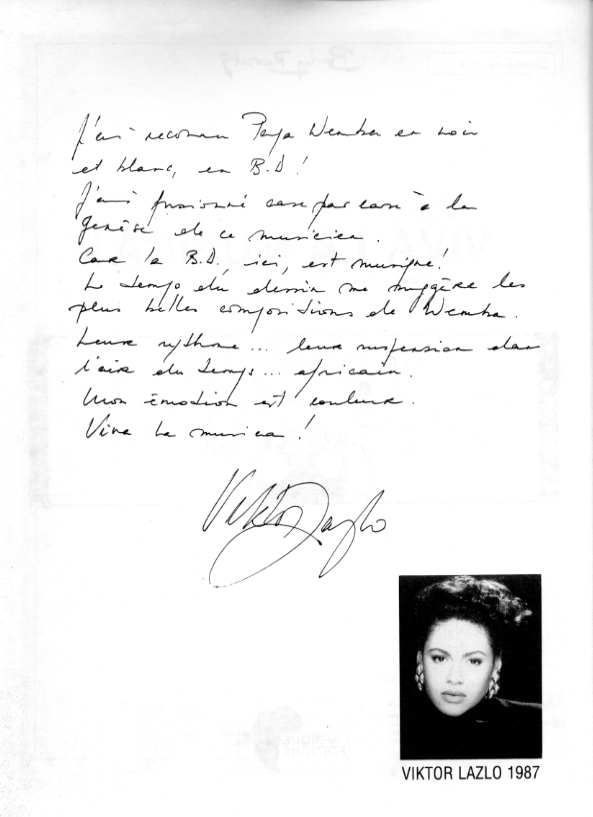 J'ai reconnu Papa Wemba en noir
et blanc, en B.D!
J'ai fusionné case par case à la
genèse de ce musicien.
Car la B.D, ici, est musique!
Le tempo du dessin me suggère les
plus belles compositions de Wemba.
Leur rythme... leur suspension dans
l'air du temps... africain.
Mon émotion est couleur.
Viva la musica!
Viktor Lazlo
VIKTOR LAZLO 1987